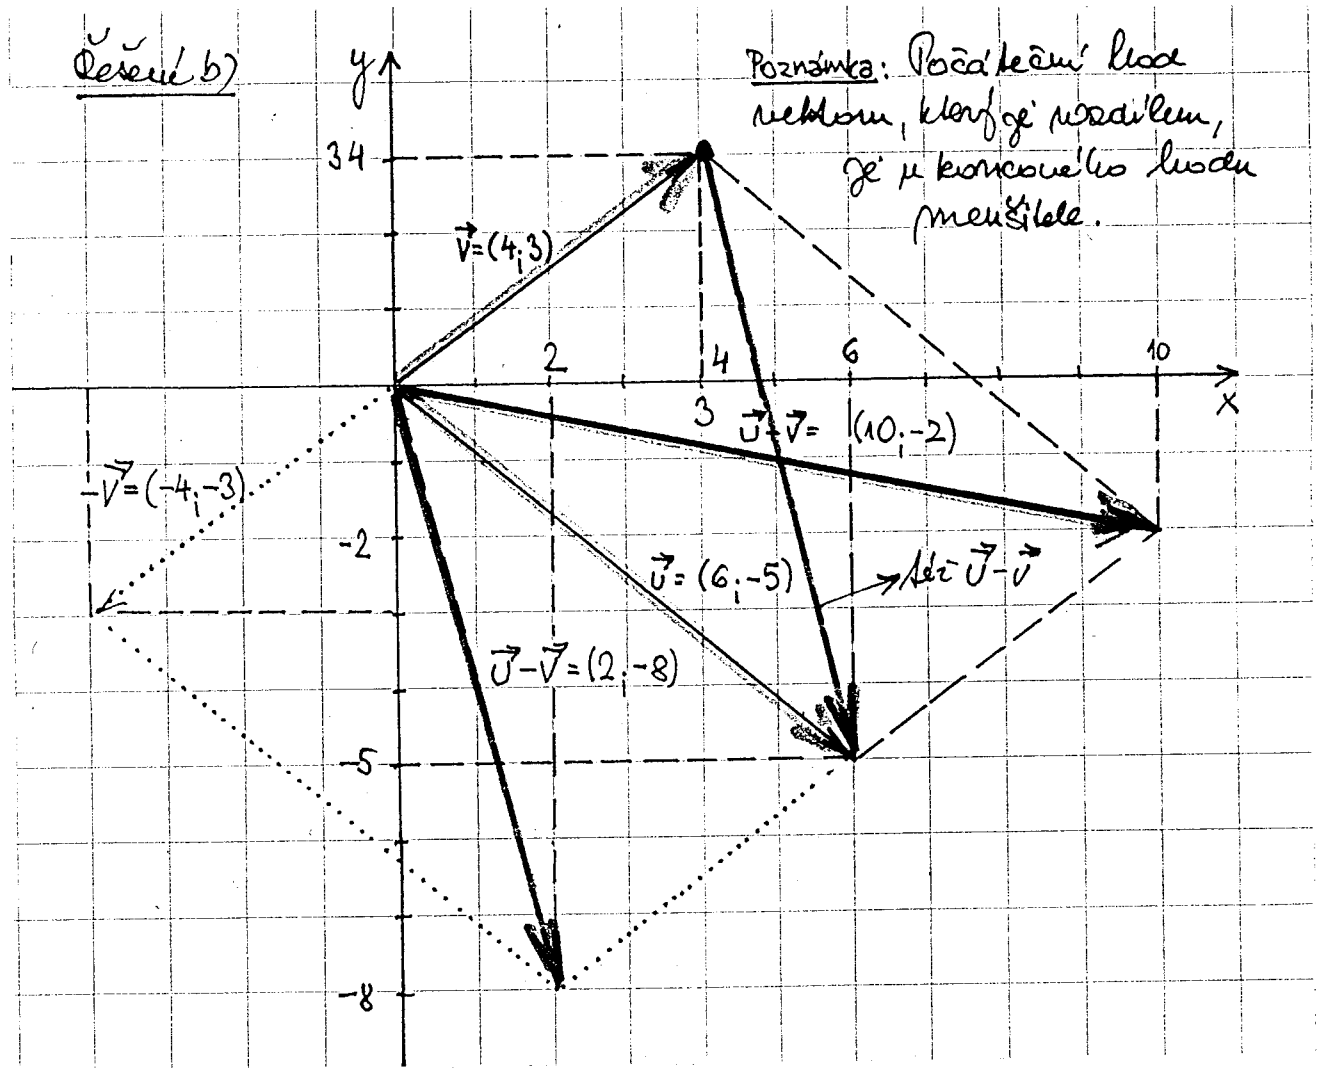 Řešení b)
y
Poznámka: Počáteční bod
vektoru, který je rozdílem,
je u koncového bodu
menšitele.
34
v=(4;3)
2
4
6
10
x
3
u-v= (10;-2)
-v=(-4;-3)
-2
u=(6;-5)
též u-v
u-v=(2;-8)
-5
-8